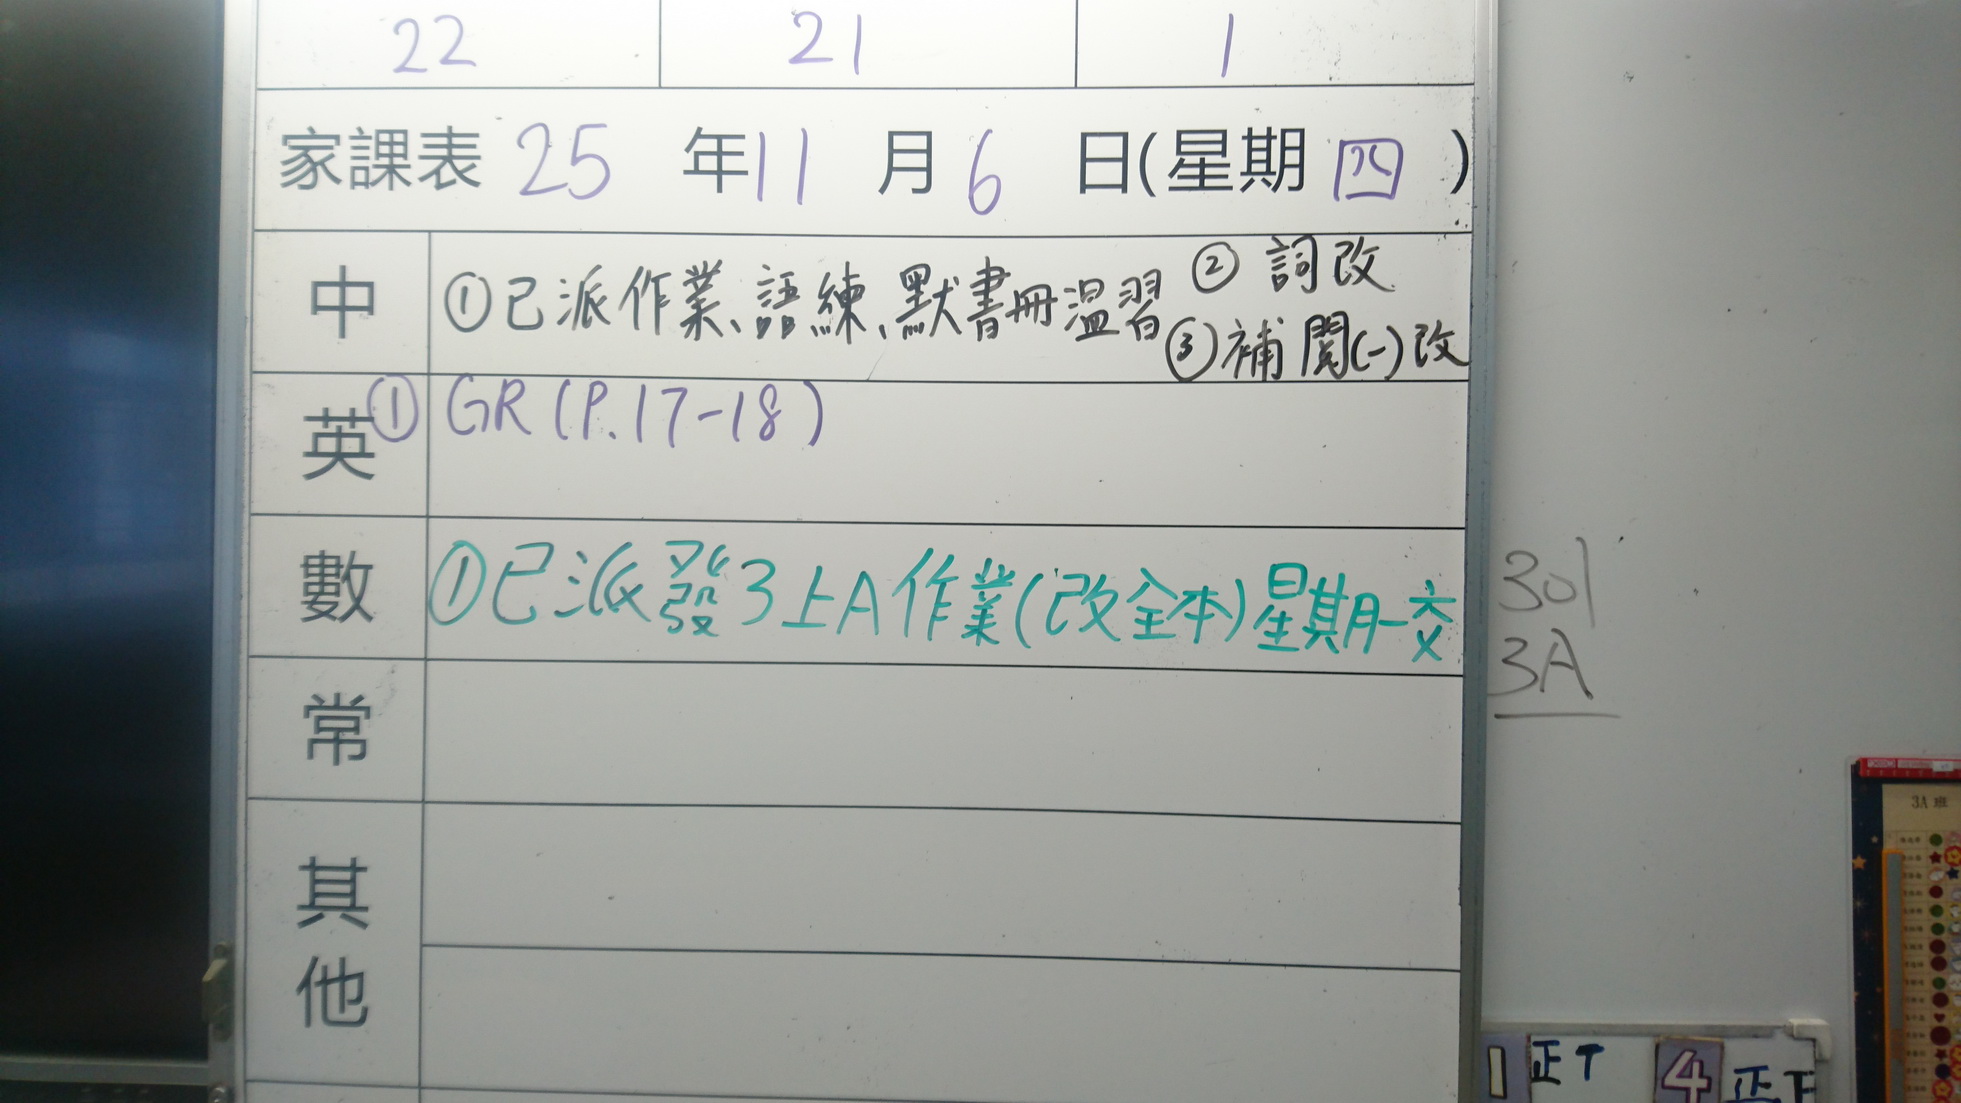 22 21 1
家課表 25 年 11 月 6 日(星期 四 )
中 ①已派作業、語練、默書冊溫習 ② 詞改
③補閱(一)改
英 ① GR (P.17-18)
數 ①已派發3上A作業(改全本)星期一交
常
其他
301
3A
3A 班
1 正
4 正